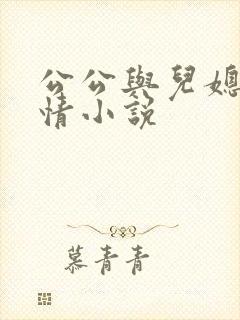 公公與兒媳
情小説
慕青青